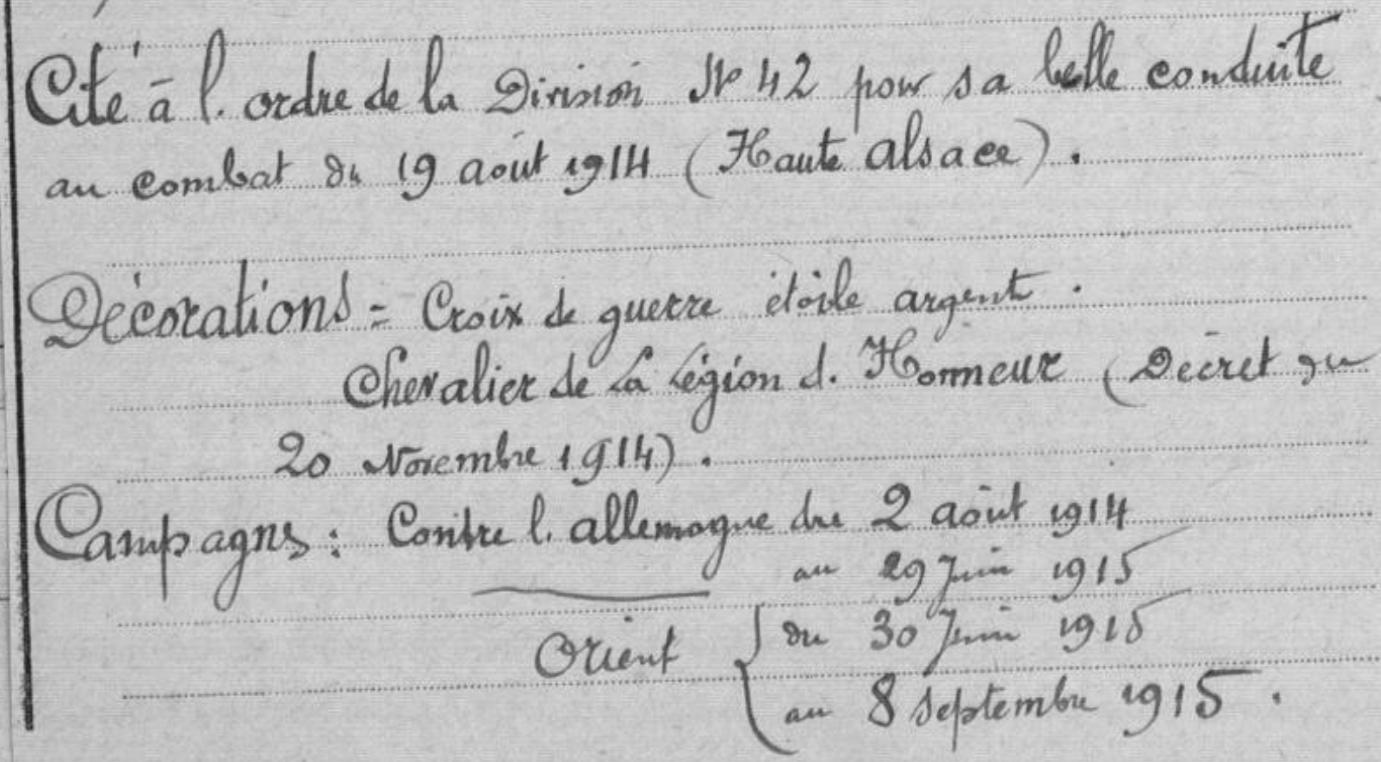 Cité à l. ordre de la Division N° 42 pour sa belle conduite
au combat du 19 août 1914 (Haute alsace).
Décorations = Croix de guerre étoile argent.
Chevalier de La Légion d. Honneur (Décret du
20 Novembre 1914).
Campagnes : Contre l. allemagne du 2 août 1914
au 29 Juin 1915
Orient { du 30 Juin 1915
au 8 Septembre 1915.